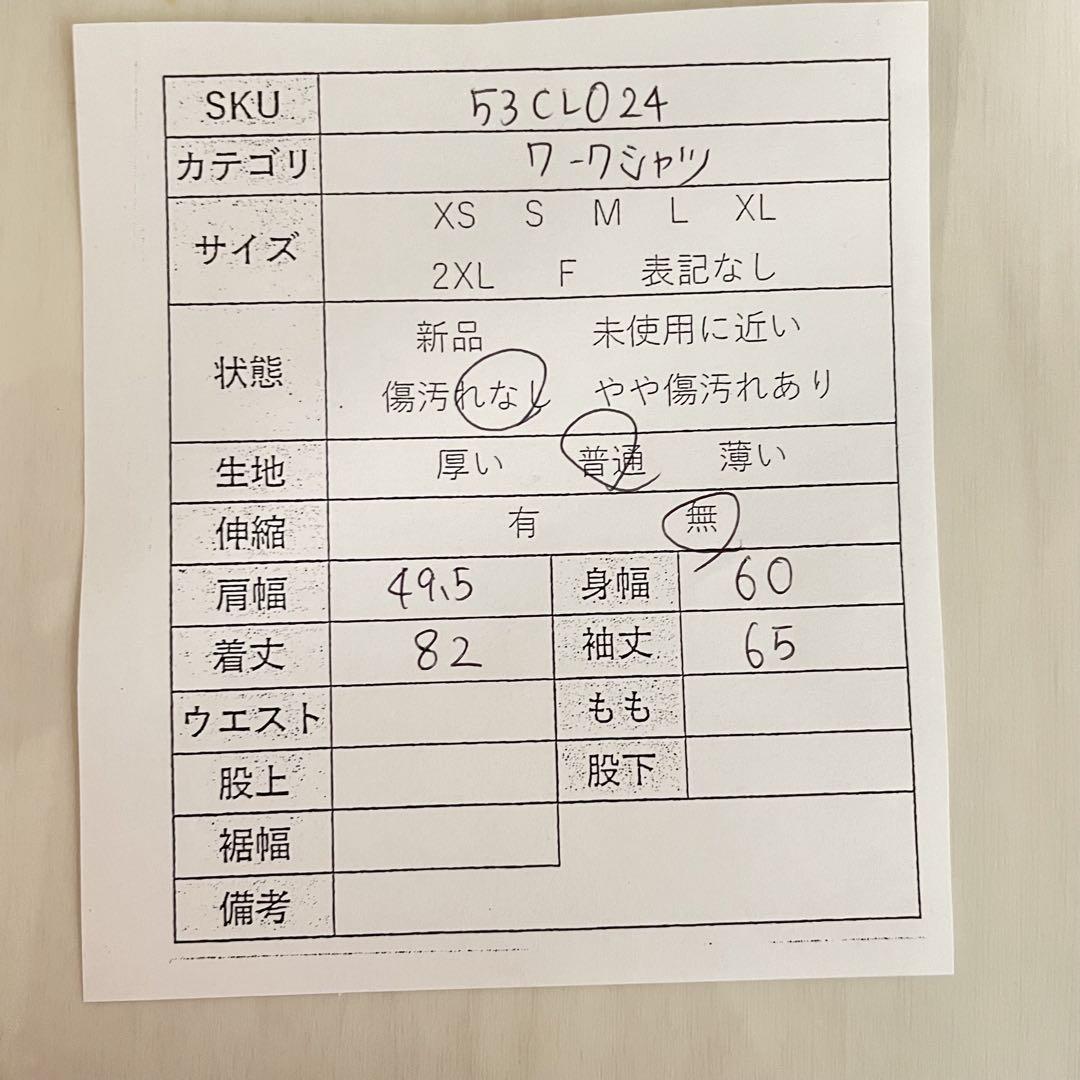 SKU 53CL024
カテゴリ ワークシャツ
サイズ XS S M L XL
2XL F 表記なし
状態 新品 未使用に近い
傷汚れなし やや傷汚れあり
生地 厚い 普通 薄い
伸縮 有 無
肩幅 49.5 身幅 60
着丈 82 袖丈 65
ウエスト もも
股上 股下
裾幅
備考